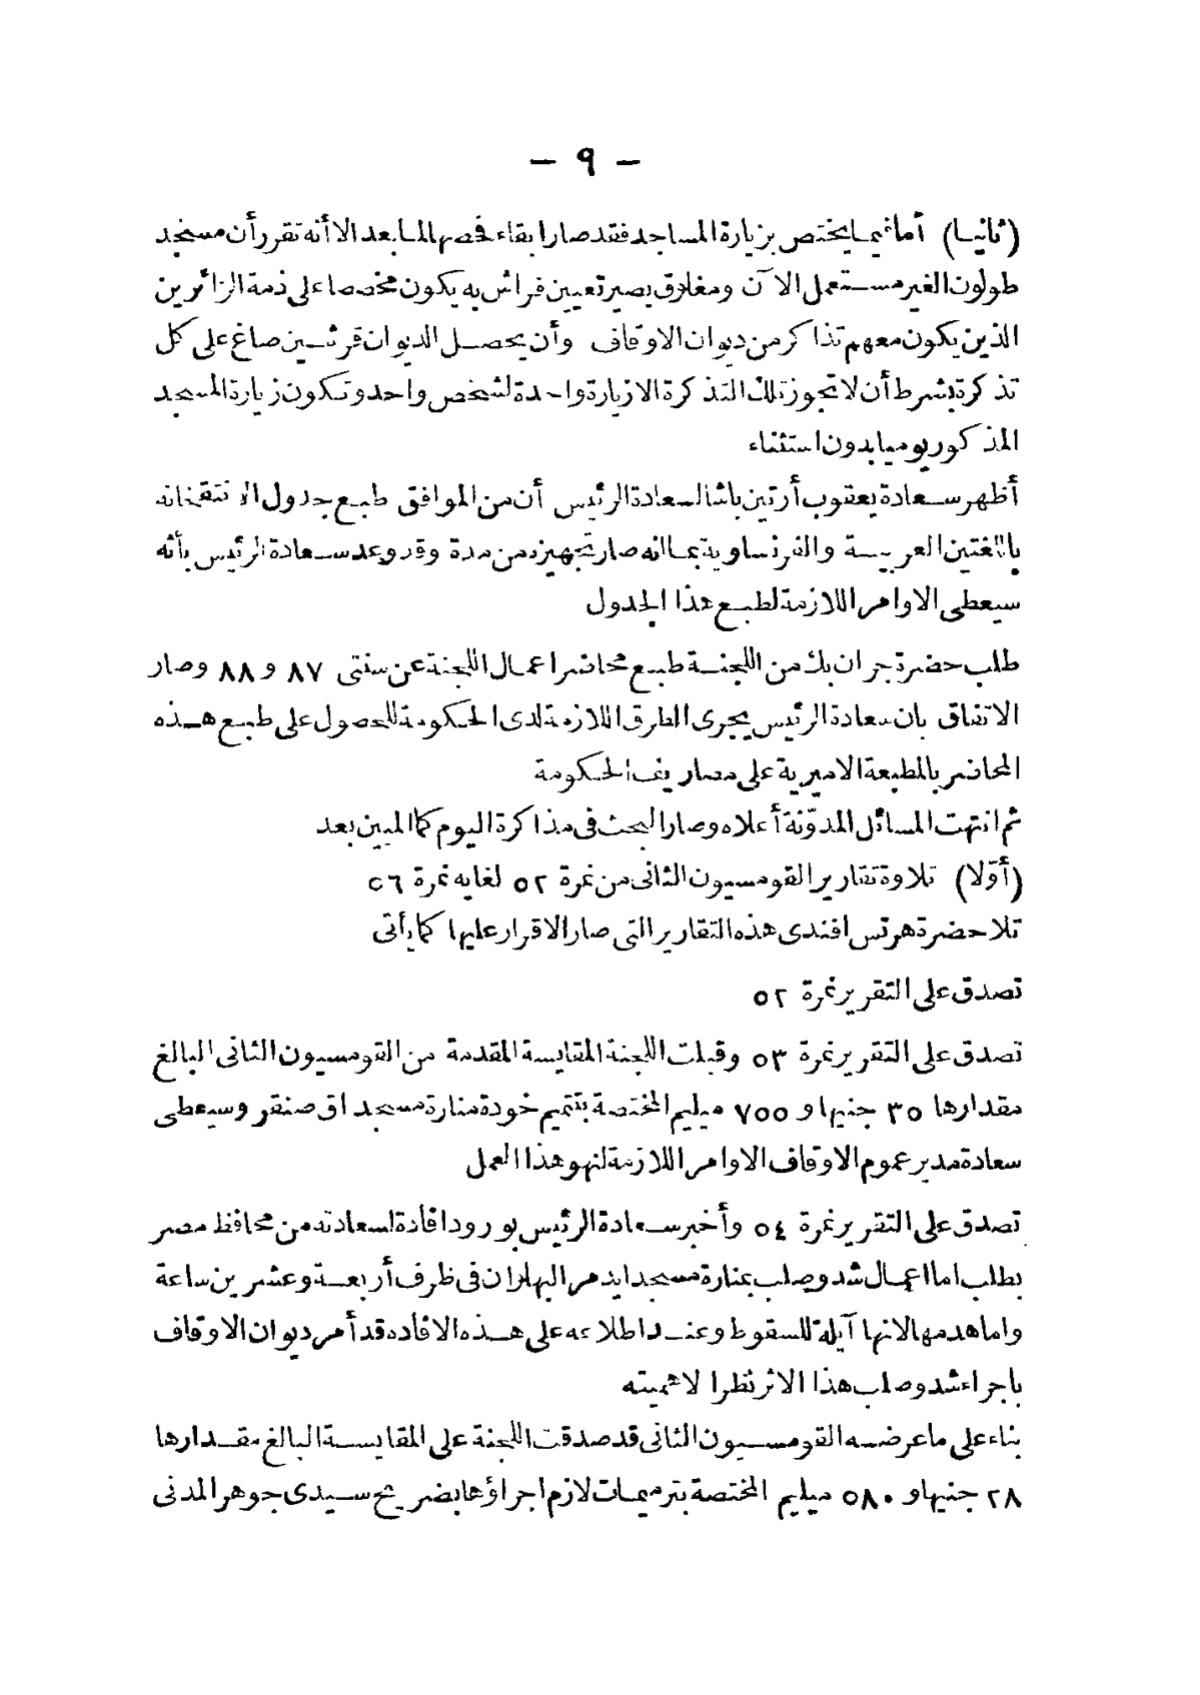 — ٩ —
(ثانيا) أما فيما يختص بزيارة المساجد فقد صار ابقاء فحصها لما بعد الا أنه تقرر أن مسجد
طولون الغير مستعمل الآن ومغلاوق يصير تعيين فراش به يكون مخصصا على ذمة الزائرين
الذين يكون معهم تذاكر من ديوان الاوقاف وأن يحصل الديوان قرشين صاغ على كل
تذكرة بشرط أن لا تجوز تلك التذكرة الا زيارة واحدة لشخص واحد وتكون زيارة المسجد
المذكور يوميا بدون استثناء
أظهر سعادة يعقوب أرتين باشا لسعادة الرئيس أن من الموافق طبع جدول الانتقخانه
باللغتين العربية والفرنساوية بما انه صار تجهيزه من مدة وقد وعد سعادة الرئيس بأنه
سيعطى الاوامر اللازمة لطبع هذا الجدول
طلب حضرة جران بك من اللجنة طبع محاضر اعمال اللجنة عن سنتى ٨٧ و ٨٨ وصار
الاتفاق بان سعادة الرئيس يجرى الطرق اللازمة لدى الحكومة للحصول على طبع هذه
المحاضر بالمطبعة الاميرية على مصاريف الحكومة
ثم انتهت المسائل المدوّنة أعلاه وصار البحث فى مذاكرة اليوم كما المبين بعد
(أوّلا) تلاوة تقارير القومسيون الثانى من نمرة ٥٢ لغايه نمرة ٥٦
تلا حضرة هرتس افندى هذه التقارير التى صار الاقرار عليها كما يأتى
تصدق على التقرير نمرة ٥٢
تصدق على التقرير نمرة ٥٣ وقبلت اللجنة المقايسة المقدمة من القومسيون الثانى البالغ
مقدارها ٣٥ جنيها و ٧٥٥ ميليم المختصة بتتميم خودة منارة مسجد اق صنقر وسيعطى
سعادة مدير عموم الاوقاف الاوامر اللازمة لنهو هذا العمل
تصدق على التقرير نمرة ٥٤ وأخبر سعادة الرئيس بورود افادة لسعادته من محافظ مصر
بطلب اما اعمال شد وصلب بمنارة مسجد ايدمر البهلوان فى ظرف أربعة وعشرين ساعة
واما هدمها لانها آيلة للسقوط وعند اطلاعه على هذه الافاده قد أمر ديوان الاوقاف
باجراء شد وصلب هذا الاثر نظرا لاهميته
بناء على ما عرضه القومسيون الثانى قد صدقت اللجنة على المقايسة البالغ مقدارها
٢٨ جنيها و ٥٨٠ ميليم المختصة بترميمات لازم اجراؤها بضريح سيدى جوهر المدنى